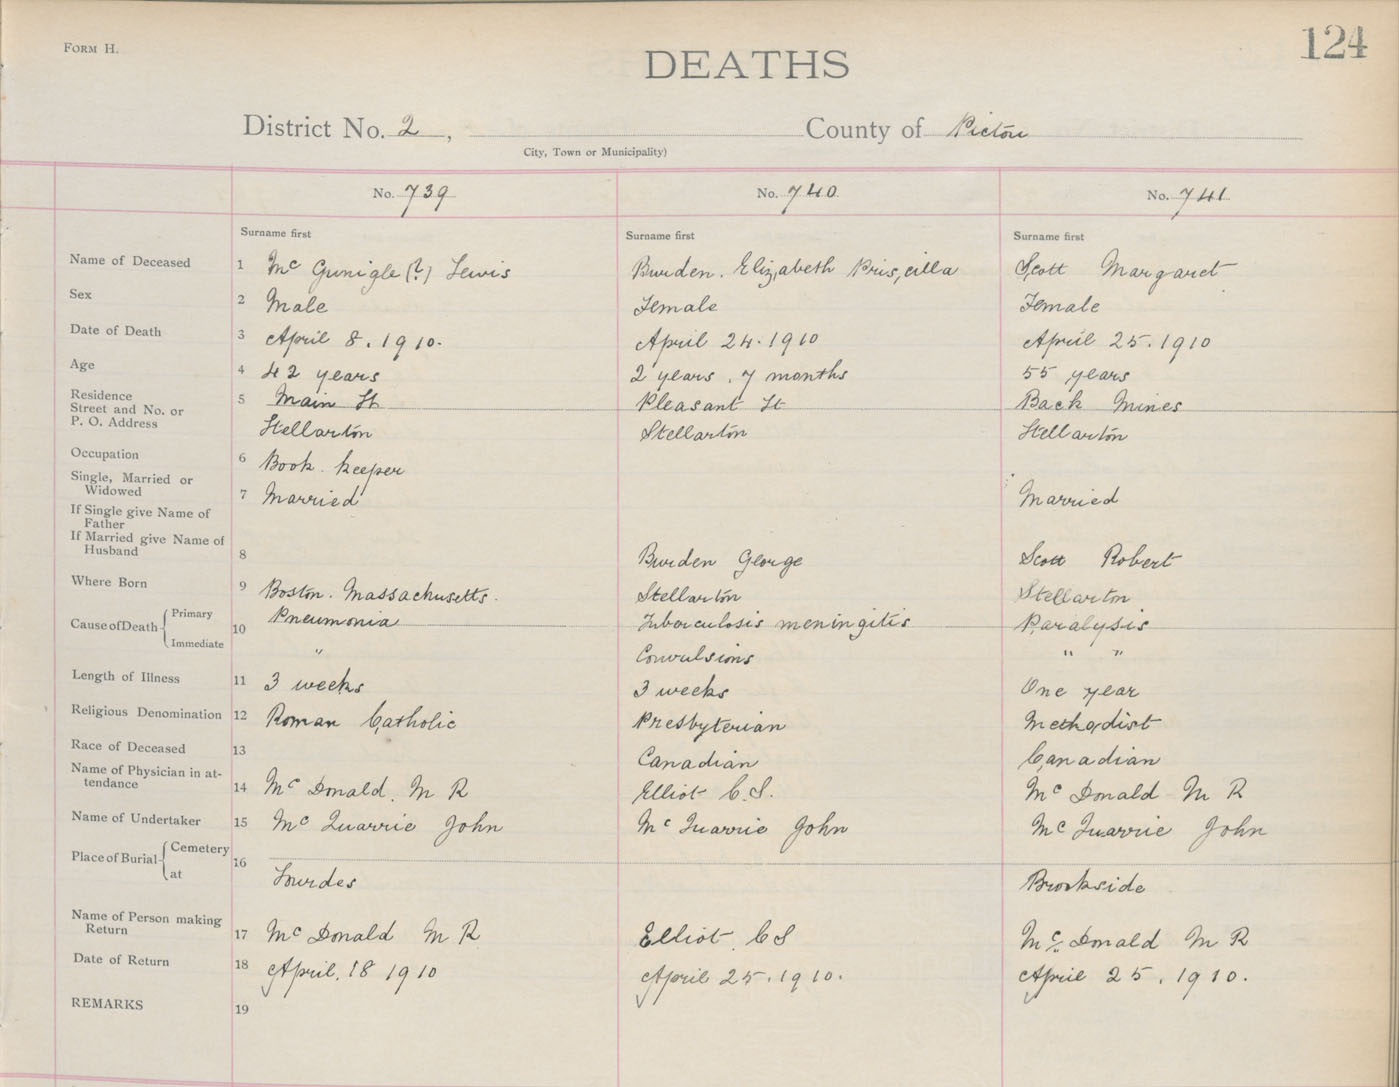 124
FORM H.
DEATHS
District No. 2, County of Pictou
City, Town or Municipality)
No. 739 No. 740 No. 741
Surname first Surname first Surname first
Name of Deceased 1 Mc Gunigle (?) Lewis Burden. Elizabeth Priscilla Scott Margaret
Sex 2 Male Female Female
Date of Death 3 April 8. 1910. April 24. 1910 April 25. 1910
Age 4 42 years 2 years. 7 months 55 years
Residence
Street and No. or 5 Main St Pleasant St Back Mines
P. O. Address Stellarton Stellarton Stellarton
Occupation 6 Book. keeper
Single, Married or
Widowed 7 Married Married
If Single give Name of
Father
If Married give Name of
Husband 8 Burden George Scott Robert
Where Born 9 Boston. Massachusetts. Stellarton Stellarton
Cause of Death Primary 10 Pneumonia Tuborculosis meningitis Paralysis
Immediate " Convulsions " "
Length of Illness 11 3 weeks 3 weeks One year
Religious Denomination 12 Roman Catholic Presbyterian Methodist
Race of Deceased 13 Canadian Canadian
Name of Physician in at-
tendance 14 Mc Donald. M R Elliot C. S. Mc Donald M R
Name of Undertaker 15 Mc Quarrie John Mc Quarrie John Mc Quarrie John
Place of Burial Cemetery 16
at Lourdes Brookside
Name of Person making
Return 17 Mc Donald M R Elliot. C S Mc Donald M R
Date of Return 18 April. 18 1910 April 25. 1910. April 25. 1910.
REMARKS 19